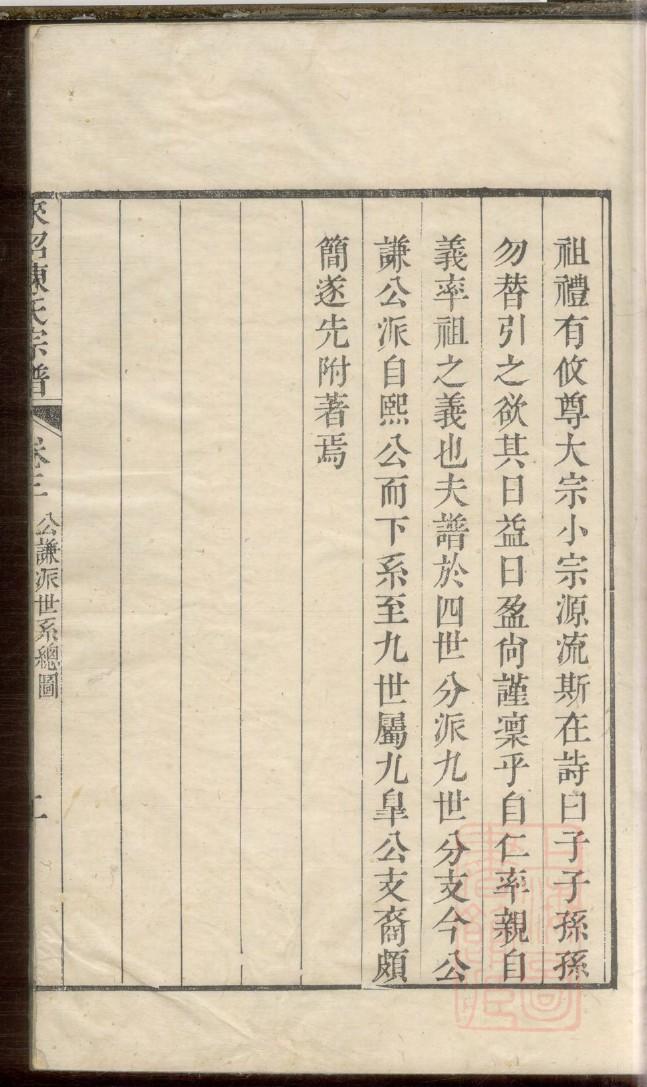 祖禮有攸尊大宗小宗源流斯在詩曰子子孫孫
勿替引之欲其日益日盈尙謹凜乎自仁率親自
義率祖之義也夫譜於四世分派九世分支今公
謙公派自熙公而下系至九世屬九臯公支裔頗
簡遂先附著焉
陳氏宗譜
卷三
公謙派世系總圖